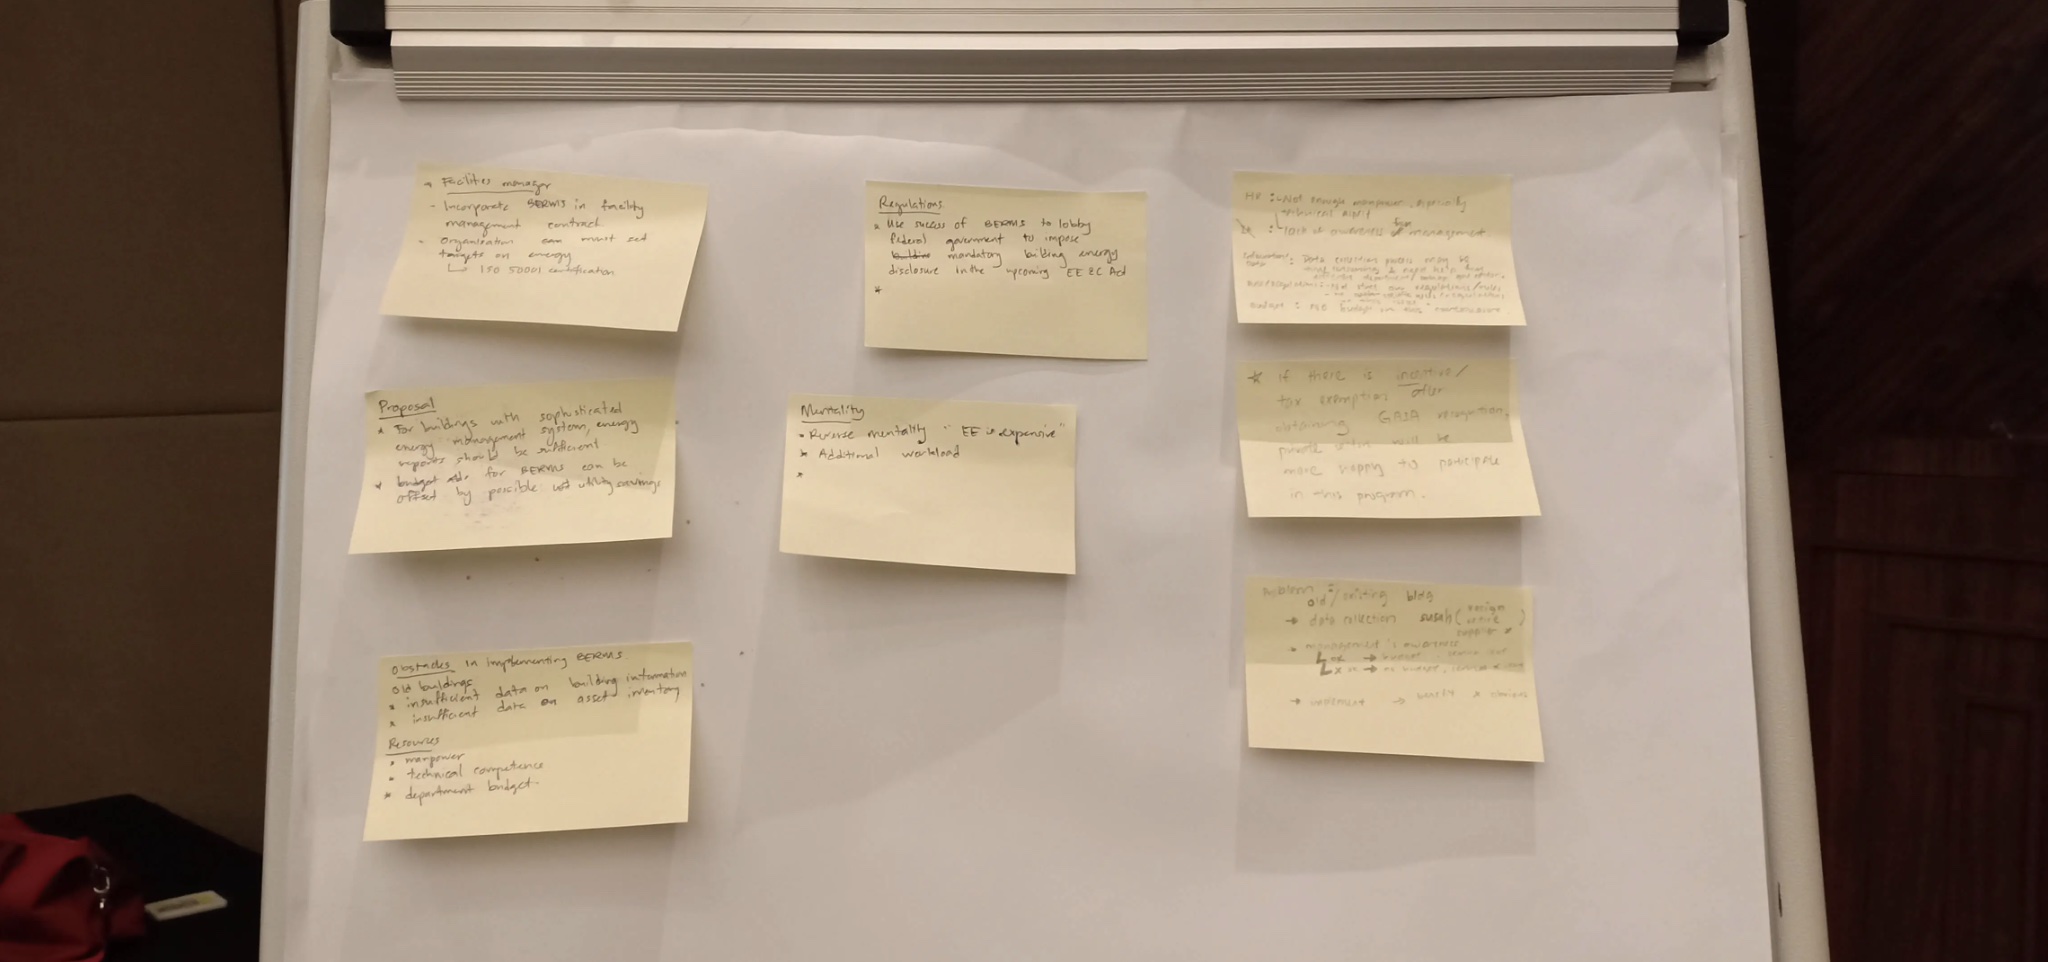 * Facilities manager
- Incorporate BERMS in facility
management contract
- Organisation can must set
targets on energy
↳ ISO 50001 certification
Proposal
* For buildings with sophisticated
energy management system, energy
reports should be sufficient
* budget for BERMS can be
offset by possible utility savings
Obstacles in implementing BERMS.
Old buildings
* insufficient data on building information
* insufficient data on asset inventory
Resources
* manpower
* technical competence
* department budget.
Regulations
* Use success of BERMS to lobby
federal government to impose
mandatory building energy
disclosure in the upcoming EE&C Act
*
Mentality
* Reverse mentality "EE is expensive"
* Additional workload
*
HR : - Not enough manpower, especially
technical staff
: lack of awareness from management
: Data collection process may be
: No budget in this
* If there is incentive/
tax exemption after
obtaining GAIA recognition,
will be
more happy to participate
in this program.
Problem
old/existing bldg
→ data collection susah (resign
retire
* management's awareness
→ implement → verify